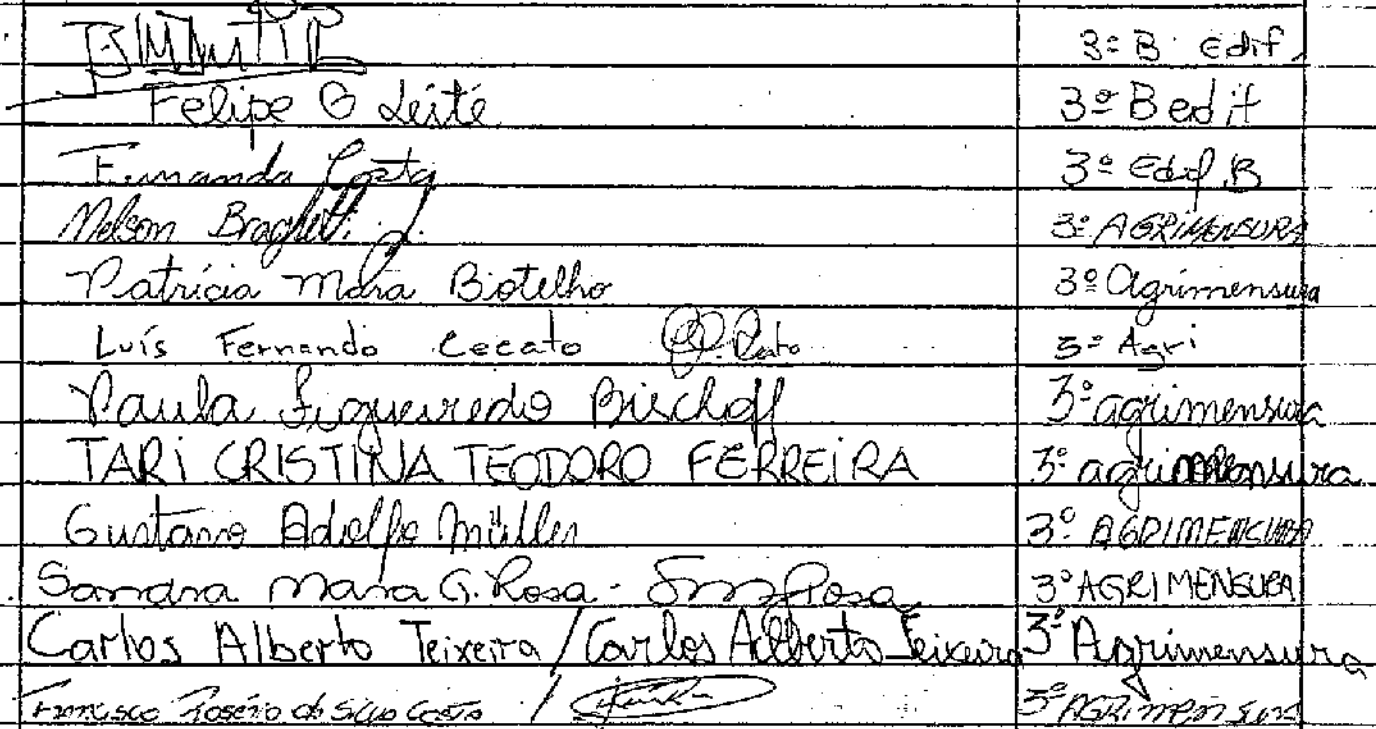 3º B Edif.
Felipe G Leite 3º B edif
Fernanda Costa 3º Edif. B
Nelson Braghetti J. 3º AGRIMENSURA
Patrícia Mara Biotelho 3º Agrimensura
Luís Fernando Cecato 3º Agri
Paula Figueiredo Bischoff 3º agrimensura
TARI CRISTINA TEODORO FERREIRA 3º agrimensura
Gustavo Adolfo Müller 3º AGRIMENSURA
Sandra Mara G. Rosa - Rosa 3º AGRIMENSURA
Carlos Alberto Teixeira / Carlos Alberto Teixeira 3º Agrimensura
Francisco Rosério da Silva Costa / 3º AGRIMENSURA